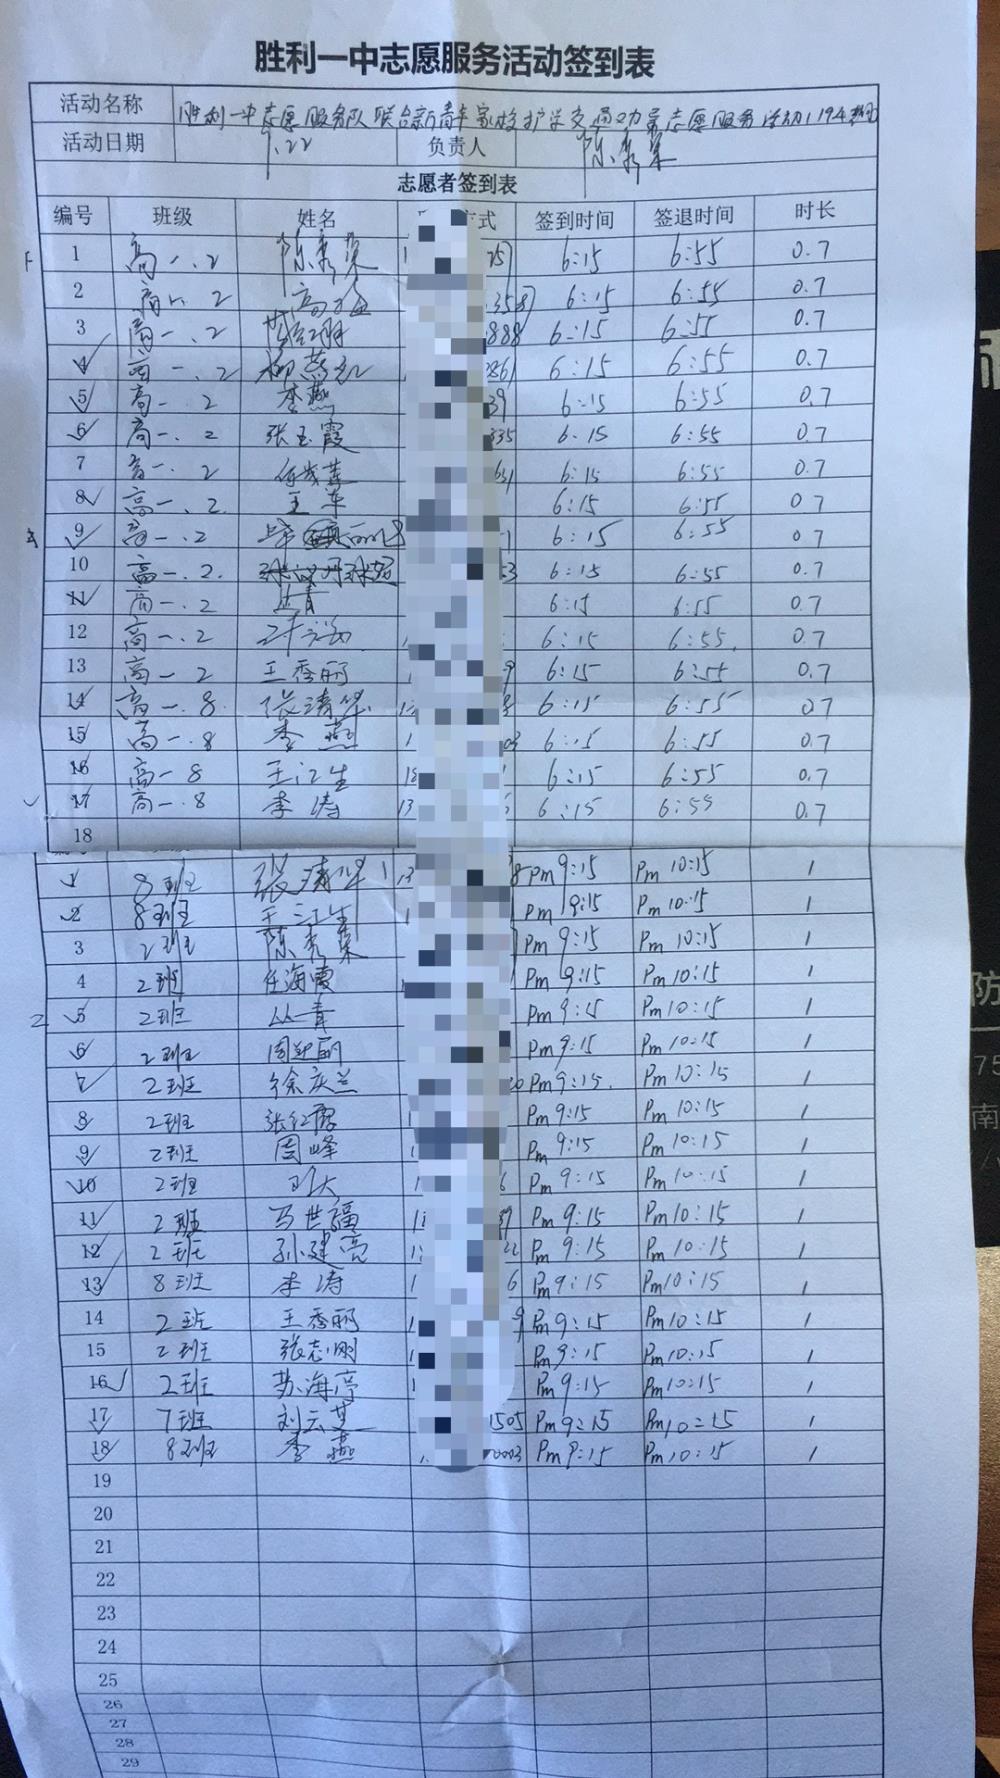 胜利一中志愿服务活动签到表
活动名称 胜利一中志愿服务队联合新青年家校护学支通力莱志愿服务活动
活动日期 9.22 负责人 陈秀荣
志愿者签到表
编号 班级 姓名 方式 签到时间 签退时间 时长
1 高一.2 陈秀荣 6:15 6:55 0.7
2 高一.2 6:15 6:55 0.7
3 高一.2 888 6:15 6:55 0.7
4 高一.2 柳燕红 861 6:15 6:55 0.7
5 高一.2 李燕 39 6:15 6:55 0.7
6 高一.2 张玉霞 335 6:15 6:55 0.7
7 高一.2 6:15 6:55 0.7
8 高一.2 王军 6:15 6:55 0.7
9 高一.2 6:15 6:55 0.7
10 高一.2 53 6:15 6:55 0.7
11 高一.2 丛青 6:15 6:55 0.7
12 高一.2 6:15 6:55 0.7
13 高一.2 王秀丽 9 6:15 6:55 0.7
14 高一.8 张涛华 6:15 6:55 0.7
15 高一.8 李燕 03 6:15 6:55 0.7
16 高一8 王江生 18 6:15 6:55 0.7
17 高一.8 李涛 13 6:15 6:55 0.7
18
1 8班 张涛华 13 8 Pm 9:15 Pm 10:15 1
2 8班 王江生 1 Pm 9:15 Pm 10:15 1
3 2班 陈秀荣 Pm 9:15 Pm 10:15 1
4 2班 任海霞 Pm 9:15 Pm 10:15 1
5 2班 丛青 Pm 9:15 Pm 10:15 1
6 2班 周延丽 Pm 9:15 Pm 10:15 1
7 2班 徐庆兰 20 Pm 9:15 Pm 10:15 1
8 2班 张红霞 1 Pm 9:15 Pm 10:15 1
9 2班 周峰 1 Pm 9:15 Pm 10:15 1
10 2班 1 6 Pm 9:15 Pm 10:15 1
11 2班 马世福 Pm 9:15 Pm 10:15 1
12 2班 孙建亮 22 Pm 9:15 Pm 10:15 1
13 8班 李涛 1 6 Pm 9:15 Pm 10:15 1
14 2班 王秀丽 1 9 Pm 9:15 Pm 10:15 1
15 2班 张志刚 1 Pm 9:15 Pm 10:15 1
16 2班 苏海亭 1 Pm 9:15 Pm 10:15 1
17 7班 刘云芝 1505 Pm 9:15 Pm 10:15 1
18 8班 李燕 0003 Pm 9:15 Pm 10:15 1
19
20
21
22
23
24
25
26
27
28
29
防
75
南